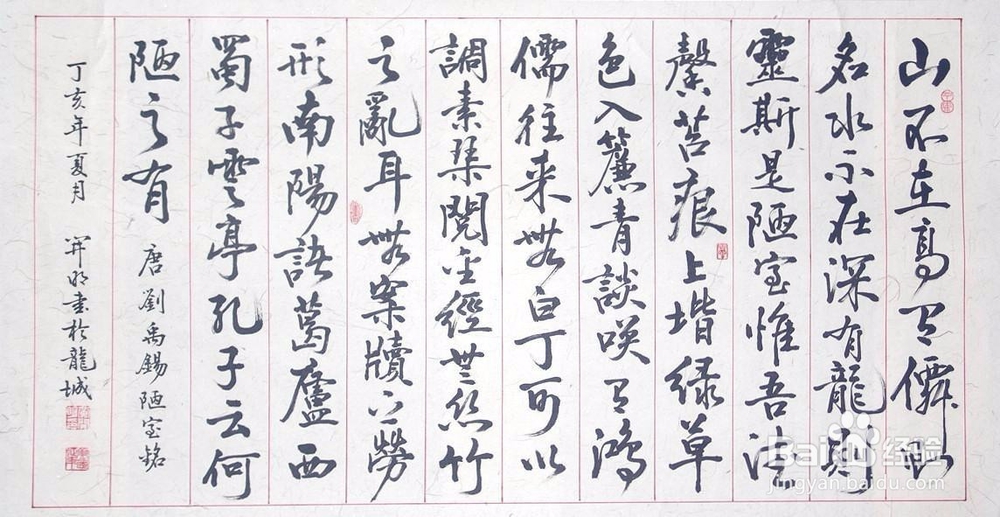 山不在高有僊則
名水不在深有龍則
靈斯是陋室惟吾德
馨苔痕上堦緑草
色入簾青談咲有鴻
儒往来無白丁可以
調素琴閱金經無丝竹
之亂耳無案牘之勞
形南陽諸葛廬西
蜀子雲亭孔子云何
陋之有
唐劉禹錫陋室銘
丁亥年夏月 開明書於龍城
Baidu经验
jingyan.baidu.com